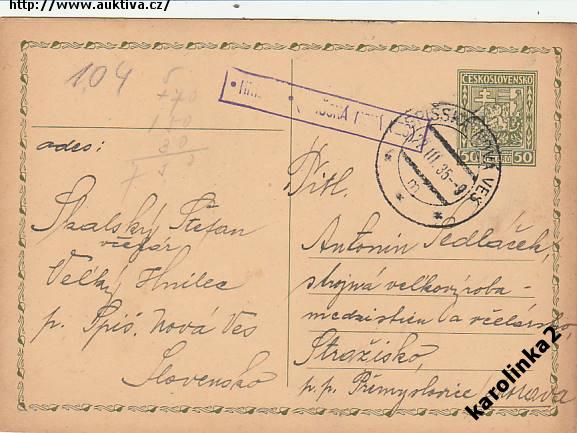 http://www.auktiva.cz/
104
5
+70
30
ČESKOSLOVENSKO
50 50
SPIŠSKÁ NOVÁ VES
III 35-9
adres:
Skalský Štefan
včelár
Veľký Hnilec
p. Spiš. Nová Ves
Slovensko
Titl.
Antonín Sedláček,
strojná veľkovýroba
medzistien a včelársko,
Stražisko,
p.p. Přemyslovice Morava
karolinka2